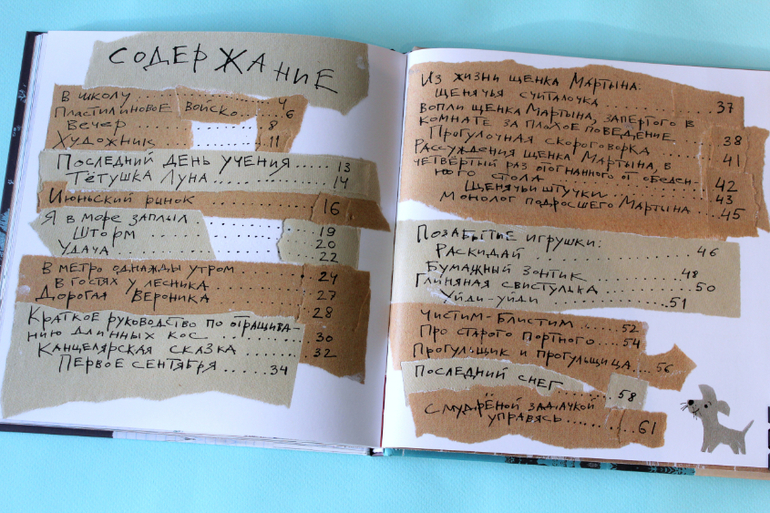 СОДЕРЖАНИЕ
В школу ........ 4
Пластилиновое войско .. 6
Вечер ........ 8
Художник ........ 11
Последний день учения ..... 13
Тётушка Луна ........ 14
Июньский рынок ........ 16
Я в море заплыл ........ 19
Шторм ........ 20
Удача ........ 22
В метро однажды утром ........ 24
В гостях у лесника ........ 27
Дорогая Вероника ........ 28
Краткое руководство по отращива-
нию длинных кос ........ 30
Канцелярская сказка ........ 32
Первое сентября ..... 34
Из жизни щенка Мартына:
Щенячья считалочка ........ 37
Вопли щенка Мартына, запертого в
комнате за плохое поведение ........ 38
Прогулочная скороговорка ........ 41
Рассуждения щенка Мартына, в
четвёртый раз отогнанного от обеден-
ного стола ........ 42
Щенячьи штучки ........ 43
Монолог подросшего Мартына .... 45
Позабытые игрушки:
Раскидай ........ 46
Бумажный зонтик ........ 48
Глиняная свистулька ........ 50
Уйди-уйди ........ 51
Чистим-блистим ..... 52
Про старого портного .... 54
Прогульщик и прогульщица .... 56
Последний снег ........ 58
С мудрёной задачкой
управясь ..... 61